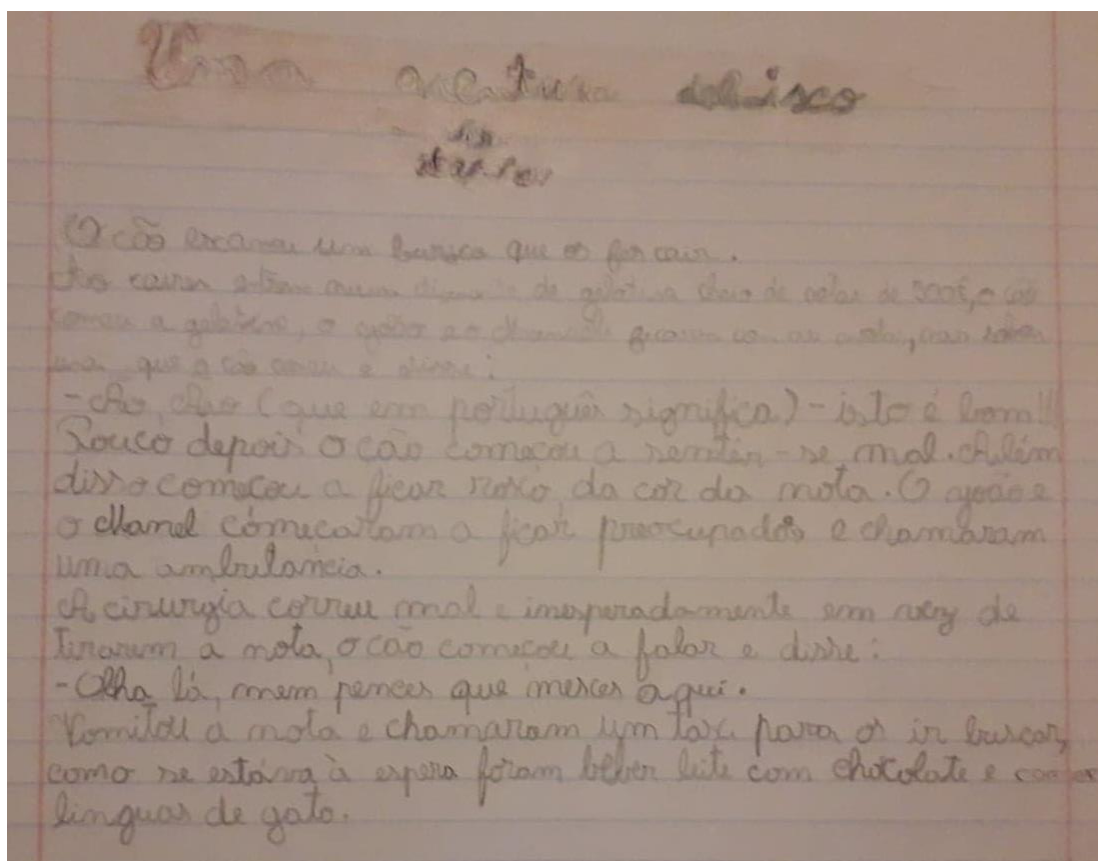 Uma
O cão escavou um buraco que os fez cair.
Ao cairem entram numa de gelatina cheio de notas de 500€, o cão
comeu a gelatina, o João e o Manel ficaram com as notas,
uma que o cão comeu e disse:
- Ao, Ao (que em português significa) - isto é bom!!
Pouco depois o cão começou a sentir-se mal. Além
disso começou a ficar roxo da cor da nota. O João e
o Manel começaram a ficar preocupados e chamaram
uma ambulância.
A cirurgia correu mal e inesperadamente em vez de
tirarem a nota, o cão começou a falar e disse:
- Olha lá, nem pences que mexes aqui.
Vomitou a nota e chamaram um taxi para os ir buscar,
como se estáva à espera foram beber leite com chocolate e comer
linguas de gato.